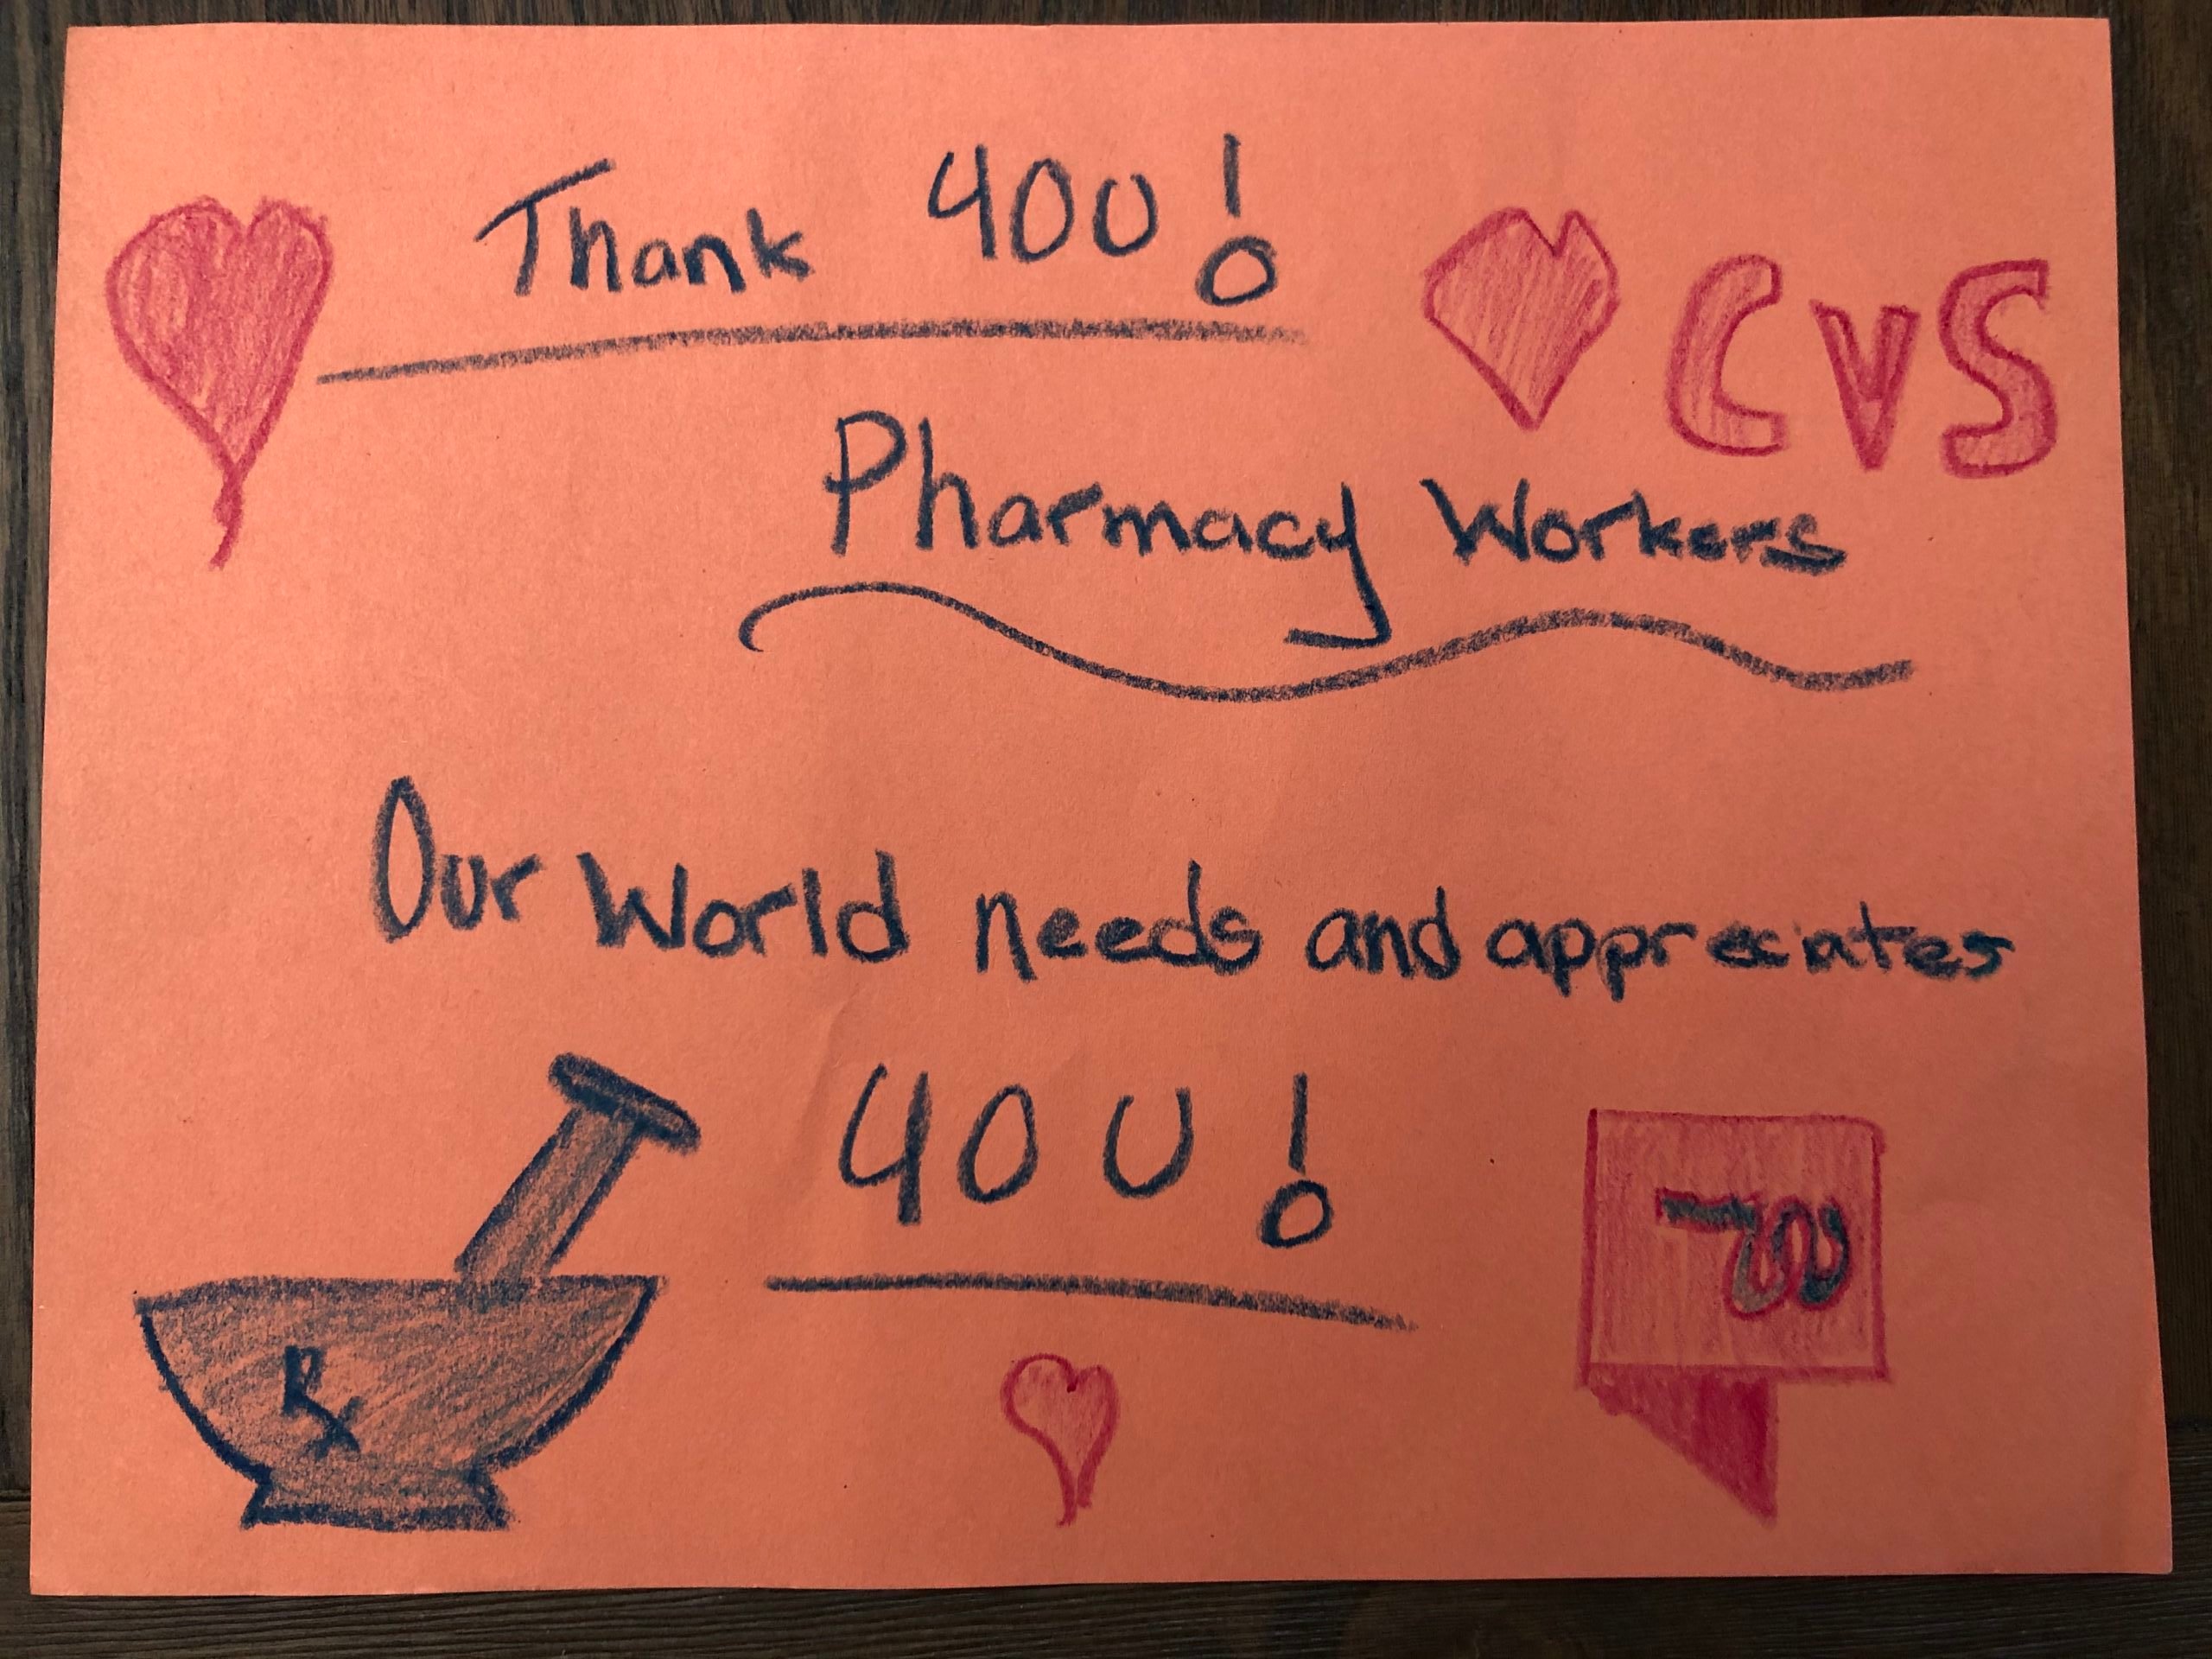 Thank YOU!
CVS
Pharmacy Workers
Our World needs and appreciates
YOU!
Rx